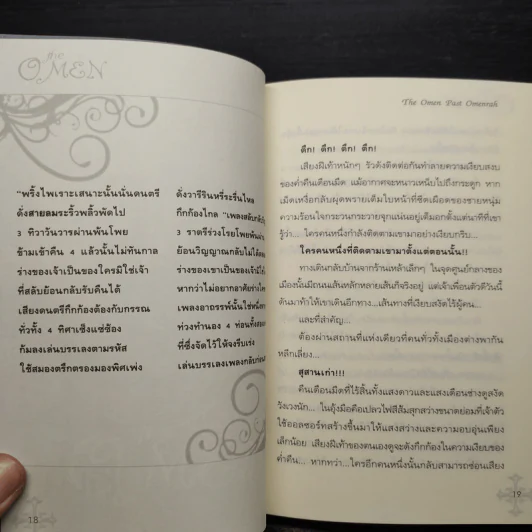 The OMEN
"พริ้งไพเราะเสนาะนั้นนั่นดนตรี
ดั่งสายลมระริ้วพลิ้วพัดไป
3 ทิวาวันวารผ่านพ้นโพย
ข้ามเช้าคืน 4 แล้วนั้นไม่ทันกาล
ร่างของเจ้าเป็นของใครมิใช่เจ้า
ที่สลับย้อนกลับรับคืนได้
เสียงดนตรีกึกก้องต้องกับกรรณ
ทั่วทั้ง 4 ทิศาเซ็งแซ่ซ้อง
ก้มลงเล่นบรรเลงตามรหัส
ใช้สมองตรึกตรองมองพิศเพ่ง
ดั่งวารีรินหรี่ระรื่นไหล
กึกก้องไกล "เพลงสลับ
3 ราตรีร่วงโรย
ย้อนวิญญาณกลับไม่ได้
ร่างของเขาเป็นของเจ้า
หากว่าไม่อยากอาศัยร่าง
เพลงอาถรรพ์นั้นใช่หนึ่ง
ท่วงทำนอง 4 ท่อนทั้ง
ที่ซึ่งจัดไว้ให้จงรีบเร่ง
เล่นบรรเลงเพลงกลับ
18
The Omen Past Omenrah
ตึก! ตึก! ตึก! ตึก!
เสียงฝีเท้าหนักๆ รัวดังติดต่อกันทำลายความเงียบสงบ
ของค่ำคืนเดือนมืด แม้อากาศจะหนาวเหน็บไปถึงกระดูก หาก
เม็ดเหงื่อกลับผุดพรายเต็มใบหน้าที่ซีดเผือดของชายหนุ่ม
ความร้อนใจกระวนกระวายจุกแน่นอยู่เต็มอกตั้งแต่นาทีที่เขา
รู้ว่า... ใครคนหนึ่งกำลังติดตามเขามาอย่างเงียบกริบ...
ใครคนหนึ่งที่ติดตามเขามาตั้งแต่ตอนนั้น!!
ทางเดินกลับบ้านจากร้านเหล้าเล็กๆ ในจุดศูนย์กลางของ
เมืองนั้นมีถนนเส้นหลักหลายเส้นก็จริงอยู่ แต่เจ้าเพื่อนตัวดีวันนี้
ดันมาทำให้เขาเดินอีกทาง...เส้นทางที่เงียบสงัดไร้ผู้คน...
และที่สำคัญ...
ต้องผ่านสถานที่แห่งเดียวที่คนทั่วทั้งเมืองต่างพากัน
หลีกเลี่ยง...
สุสานเก่า!!!
คืนเดือนมืดที่ไร้สิ้นทั้งแสงดาวและแสงเดือนช่างดูสงัด
วังเวงนัก... ในอุ้งมือคือเปลวไฟสีส้มสุกสว่างขนาดย่อมที่เจ้าตัว
ใช้ออลซอร์ทสร้างขึ้นมาให้แสงสว่างและความอบอุ่นเพียง
เล็กน้อย เสียงฝีเท้าของตนเองดูจะดังกึกก้องในความเงียบของ
ค่ำคืน... หากทว่า...ใครอีกคนหนึ่งนั้นกลับสามารถซ่อนเสียง
19